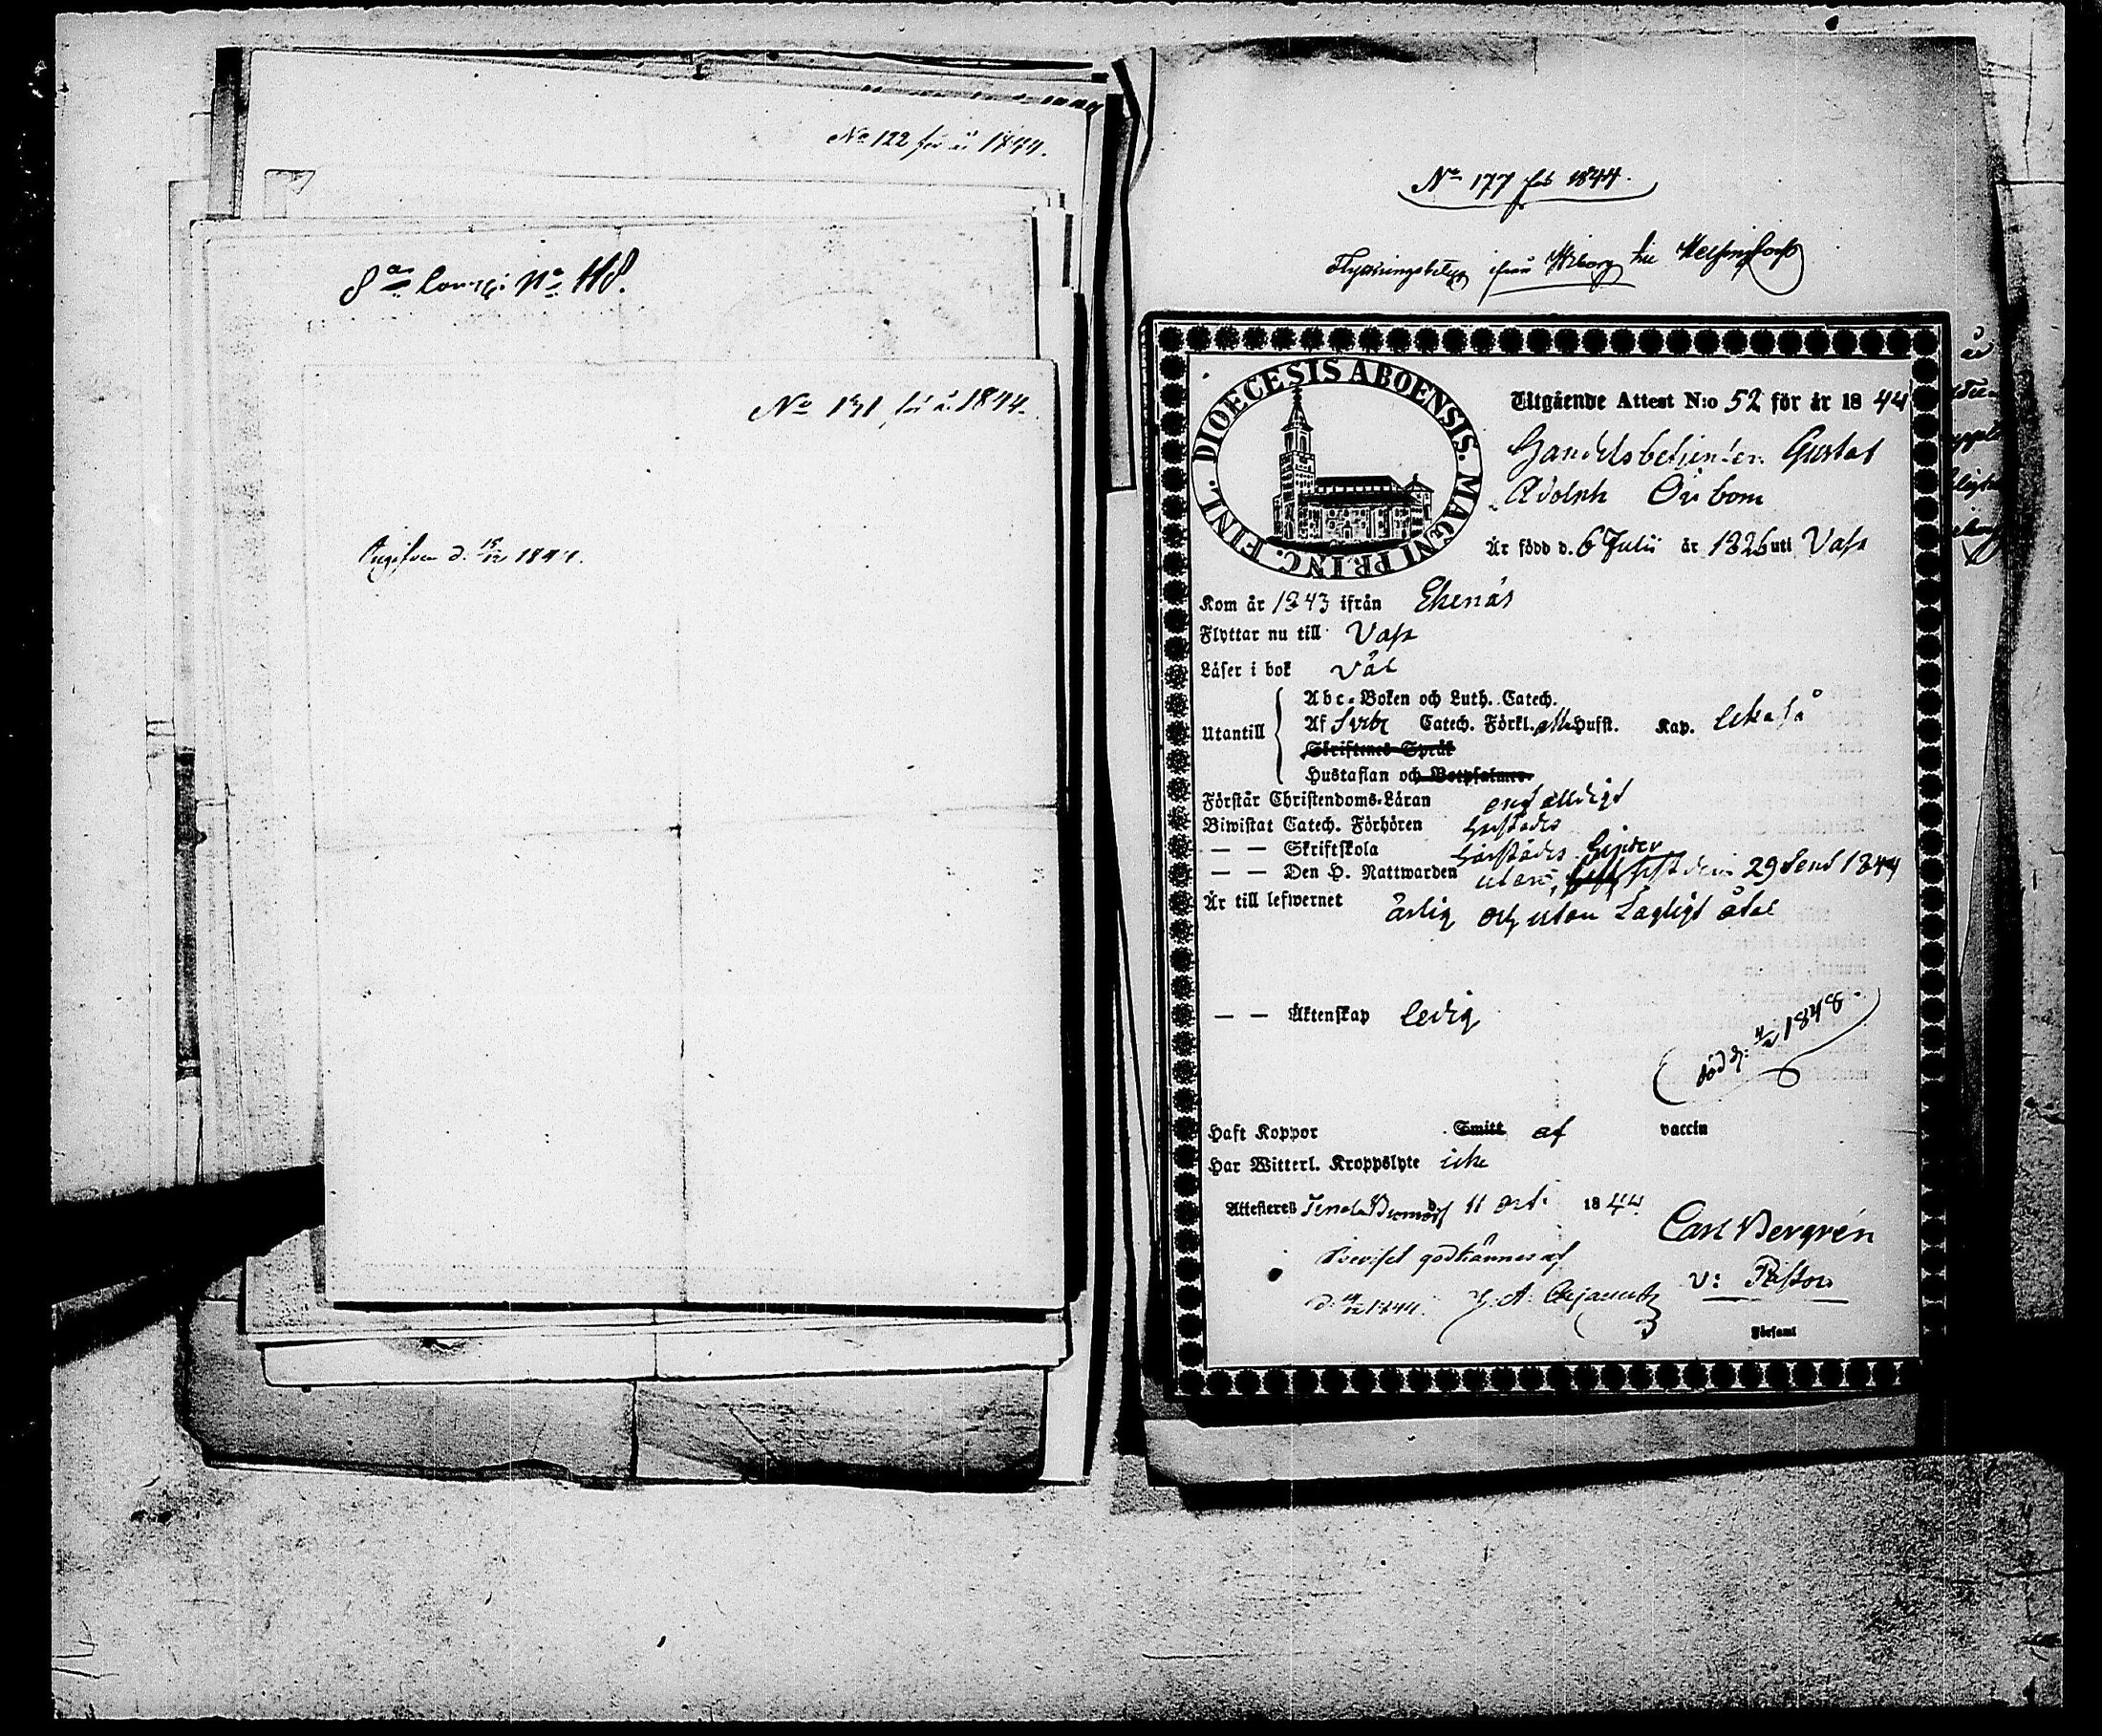 No 122 för år 1844.
No 118.
No 131 för år 1844.
1844.
No 177 för 1844.
ifrån Wiborg till Helsingfors
DIOECESIS ABOENSIS. MAGNI PRINC. FINL.
Utgående Attest N:o 52 för år 1844
Handelsbetjenten Gustaf
Adolph
Är född d. 6 Julii år 1826 uti Vasa
Kom år 1843 ifrån Ekenäs
Flyttar nu till Vasa
Läser i bok väl
Utantill
Abc-Boken och Luth. Catech.
Af Svebe Catech. Förkl. alla Hufst. Kap. lika så
Skriftenes Språk
Hustaflan och Botpsalmer.
Förstår Christendoms-Läran enfalldigt
Biwistat Catech. Förhören härstädes
— — Skriftskola härstädes
— — Den H. Nattwarden sist den 29 Sept 1844
Är till lefwernet ärlig och utan Lagligt åtal
— — Äktenskap ledig
död d: 1848.
Haft Koppor Smitt af vaccin
Har Witterl. Kroppslyte icke
Attesteras Tenala 11 Oct. 1844.
Carl Bergrén
godkännes af
v: Pastor
1844.
Församl